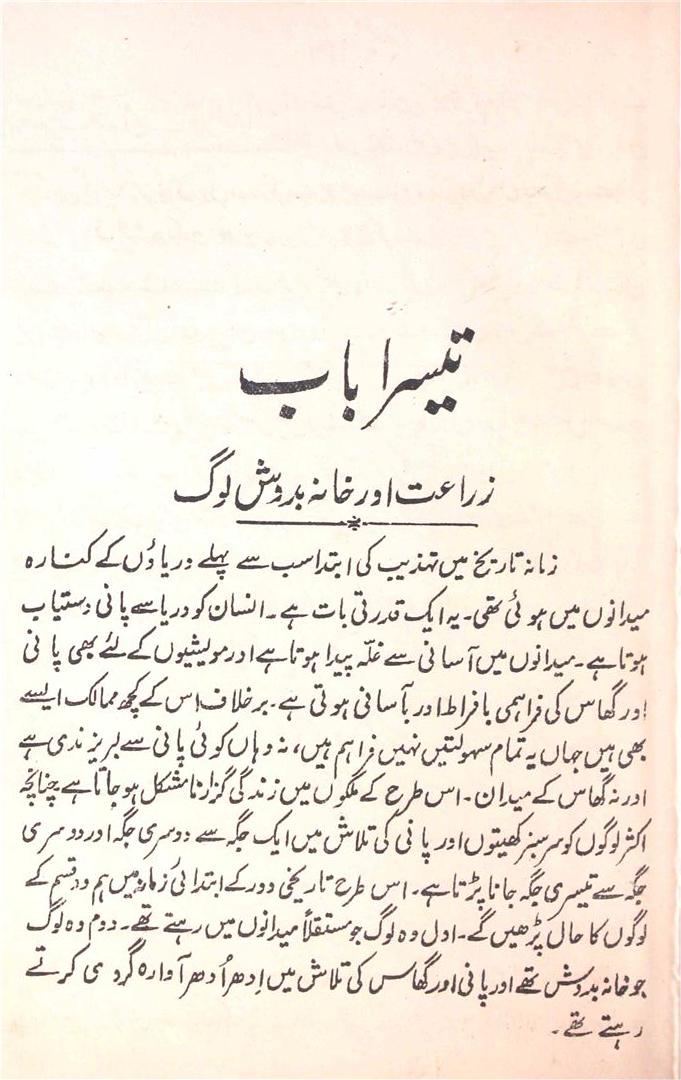 تیسرا باب
زراعت اور خانہ بدوش لوگ
زمانہ تاریخ میں تہذیب کی ابتدا سب سے پہلے دریاؤں کے کنارہ
میدانوں میں ہوئی تھی۔ یہ ایک قدرتی بات ہے۔ انسان کو دریا سے پانی دستیاب
ہوتا ہے۔ میدانوں میں آسانی سے غلّہ پیدا ہوتا ہے اور مویشیوں کے لئے بھی پانی
اور گھاس کی فراہمی بافراط اور بآسانی ہوتی ہے۔ برخلاف اس کے کچھ ممالک ایسے
بھی ہیں جہاں یہ تمام سہولتیں نہیں فراہم ہیں، نہ وہاں کوئی پانی سے لبریز ندی ہے
اور نہ گھاس کے میدان۔ اس طرح کے ملکوں میں زندگی گزارنا مشکل ہو جاتا ہے چنانچہ
اکثر لوگوں کو سرسبز کھیتوں اور پانی کی تلاش میں ایک جگہ سے دوسری جگہ اور دوسری
جگہ سے تیسری جگہ جانا پڑتا ہے۔ اس طرح تاریخی دور کے ابتدائی زمانہ میں ہم دو قسم کے
لوگوں کا حال پڑھیں گے۔ اول وہ لوگ جو مستقلاً میدانوں میں رہتے تھے۔ دوم وہ لوگ
جو خانہ بدوش تھے اور پانی اور گھاس کی تلاش میں اِدھر اُدھر آوارہ گردی کرتے
رہتے تھے۔